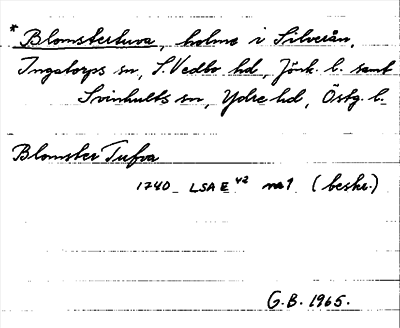 * Blomstertuva, holme i Silverån,
Ingatorps sn, S. Vedbo hd, Jönk. l. samt
Svinhults sn, Ydre hd, Östg. l.
Blomster Tufva
1740 LSA E 42 nr 1 (beskr.)
G.B. 1965.